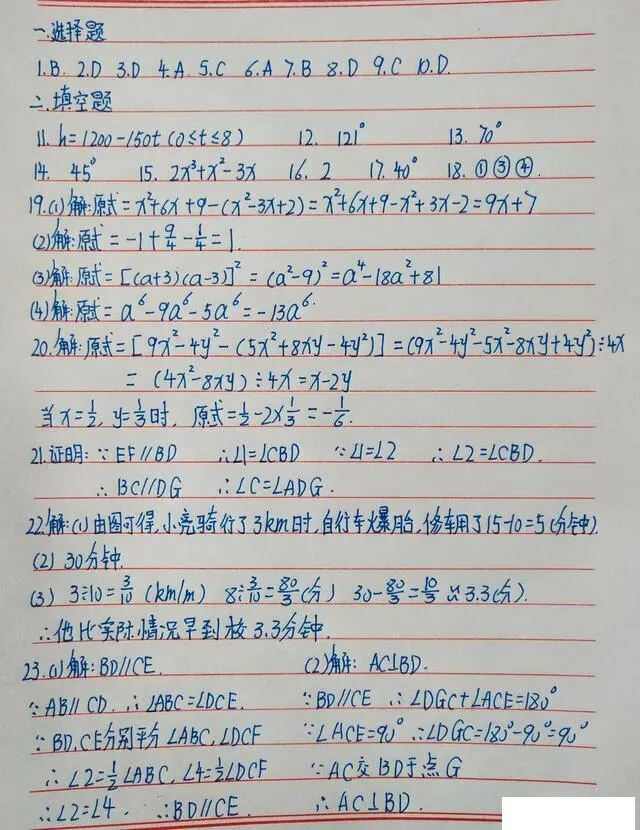 一.选择题
1.B. 2.D 3.D 4.A 5.C 6.A 7.B 8.D 9.C 10.D.
二.填空题
11. h=1200-150t (0≤t≤8) 12. 121° 13. 70°
14. 45° 15. 2x³+x²-3x 16. 2 17. 40° 18. ①③④.
19.(1)解:原式=x²+6x+9-(x²-3x+2)=x²+6x+9-x²+3x-2=9x+7
(2)解:原式=-1+9/4-1/4=1.
(3)解:原式=[(a+3)(a-3)]²=(a²-9)²=a⁴-18a²+81
(4)解:原式=a⁶-9a⁶-5a⁶=-13a⁶.
20.解:原式=[9x²-4y²-(5x²+8xy-4y²)]=(9x²-4y²-5x²-8xy+4y²)÷4x
=(4x²-8xy)÷4x=x-2y
当x=1/2, y=1/3时, 原式=1/2-2×1/3=-1/6.
21.证明:∵EF∥BD ∴∠1=∠CBD ∵∠1=∠2 ∴∠2=∠CBD.
∴BC∥DG ∴∠C=∠ADG.
22.解:(1)由图可得,小亮骑行了3km时,自行车爆胎,修车用了15-10=5(分钟).
(2) 30分钟.
(3) 3÷10=3/10 (km/m) 8÷3/10=80/3(分) 30-80/3=10/3≈3.3(分).
∴他比实际情况早到校3.3分钟.
23.(1)解:BD∥CE. (2)解: AC⊥BD.
∵AB∥CD. ∴∠ABC=∠DCE. ∵BD∥CE ∴∠DGC+∠ACE=180°
∵BD.CE分别平分∠ABC,∠DCF ∵∠ACE=90° ∴∠DGC=180°-90°=90°
∴∠2=1/2∠ABC,∠4=1/2∠DCF ∵AC交BD于点G
∴∠2=∠4. ∴BD∥CE. ∴AC⊥BD.